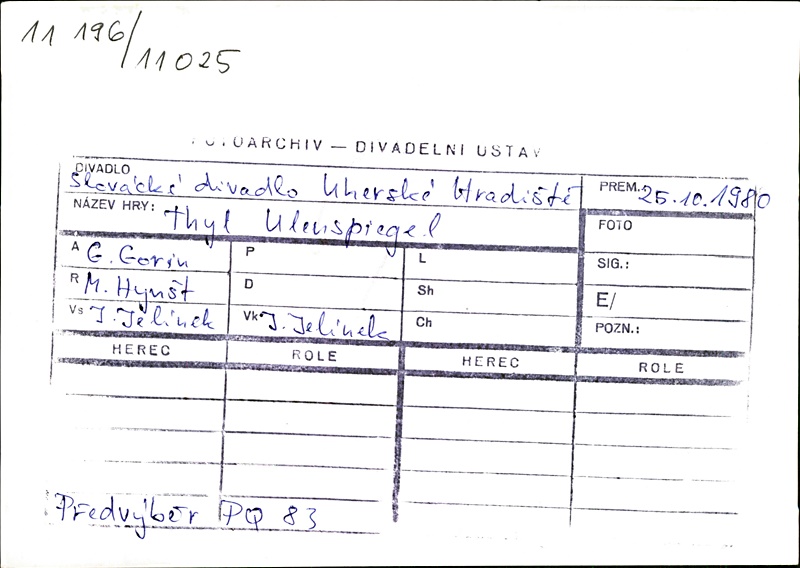 11 196/11025
FOTOARCHIV — DIVADELNÍ ÚSTAV
DIVADLO Slovácké divadlo Uherské Hradiště PREM.: 25.10.1980
NÁZEV HRY: Thyl Ulenspiegel FOTO
A G. Gorin P L SIG.:
R M. Hynšt D Sh E/
Vs J. Jelínek Vk J. Jelínek Ch POZN.:
HEREC ROLE HEREC ROLE
Předvýběr PQ 83